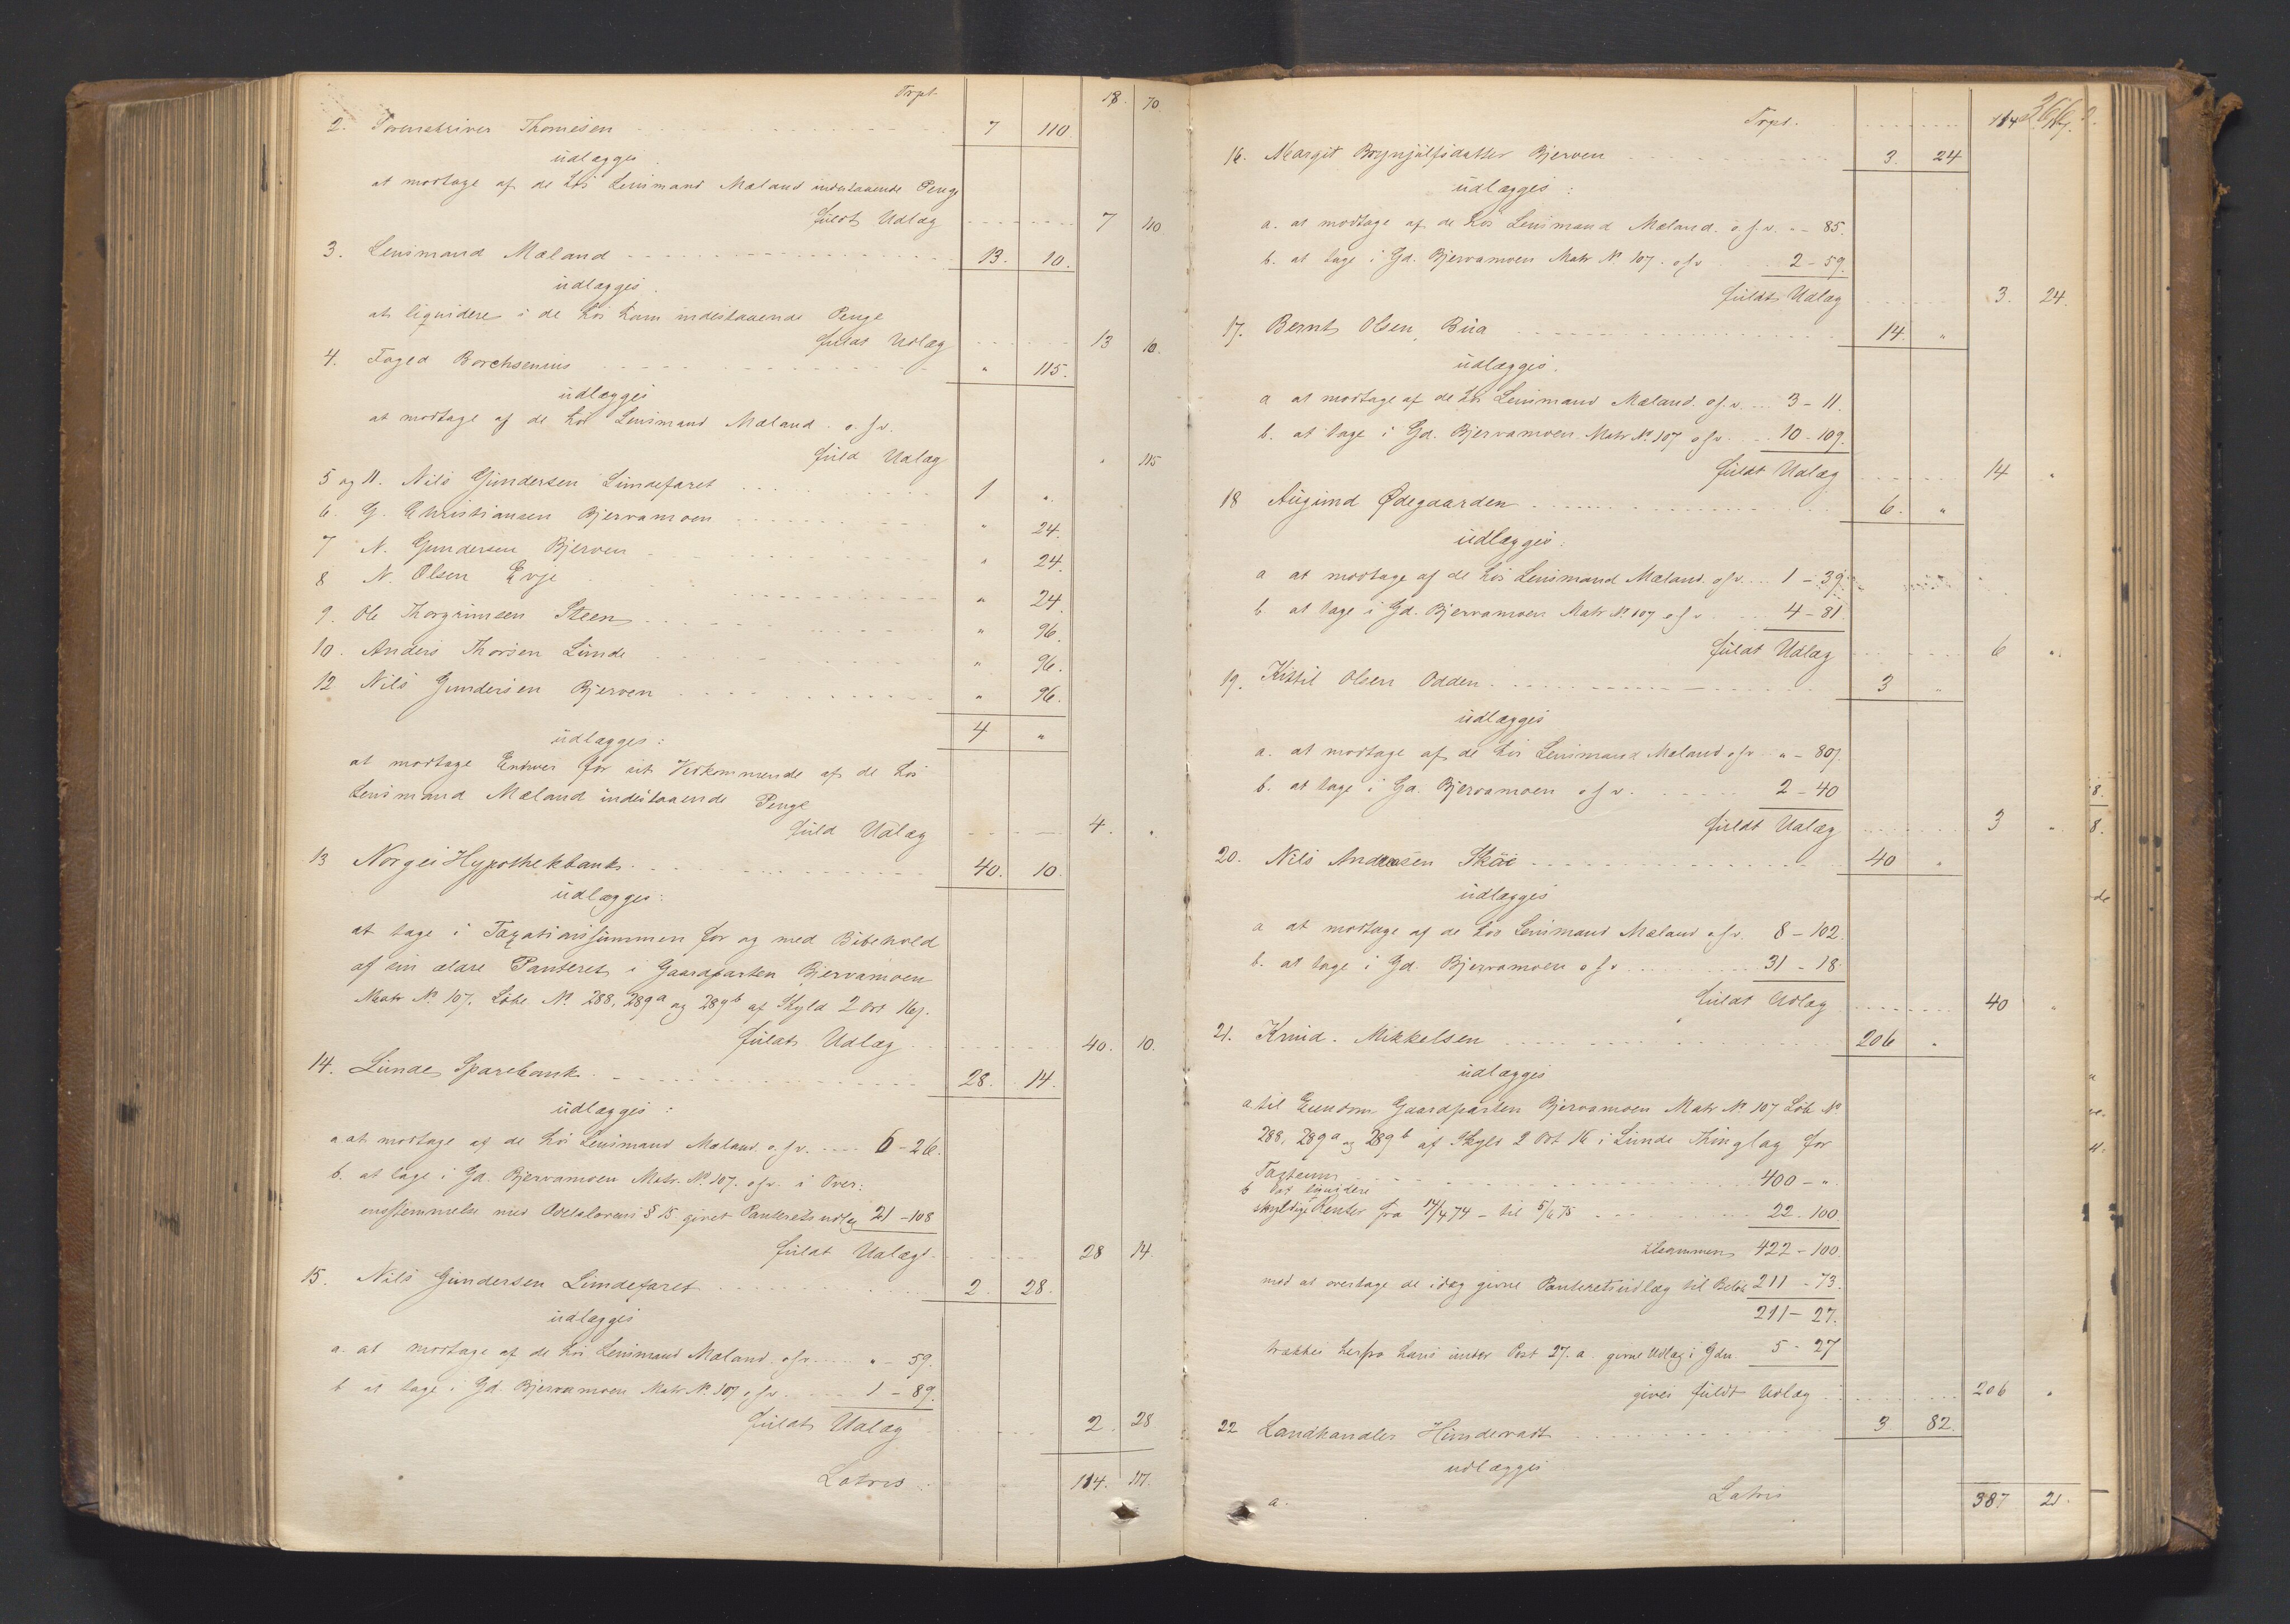 Trpt 18. 70
2. Sorenskriver Thomesen 7 110
udlægges
at modtage af de hos Lensmand Mæland indestaaende Penge
fuldt Udlæg 7 110
3. Lensmand Mæland 13. 10.
udlægges.
at liquidere i de hos ham indestaaende Penge
fuldt Udlæg 13 10.
4. Foged Borchsenius " 115.
udlægges
at modtage af de hos Lensmand Mæland o.s.v.
fuld Udlæg " 115
5 og 11. Nils Gundersen Lundefaret 1 "
6. G. Christiansen Bjervamoen " 24.
7 N. Gundersen Bjerven " 24.
8 N. Olsen Evje " 24.
9. Ole Thorgrimsen Steen " 96.
10. Anders Thorsen Lunde " 96.
12 Nils Gundersen Bjerven " 96.
4 "
udlægges:
at modtage Enhver for sit Vedkommende af de hos
Lensmand Mæland indestaaende Penge
fuld Udlæg 4. "
13 Norges Hypothekbank 40. 10.
udlægges:
at tage i Taxationssummen for og med Bibehold
af sin ældre Panteret i Gaardparten Bjervamoen
Matr No 107. Løbe No 288, 289a og 289b af Skyld 2 ort 16 s.
fuldt Udlæg 40. 10.
14. Lunde Sparebank 28. 14.
udlægges:
a at modtage af de hos Lensmand Mæland o.s.v. 6 - 26.
b. at tage i Gd. Bjervamoen Matr. No 107. osv. i Over:
ensstemmelse med Odelslovens § 15 givet Panteretsudlæg 21 - 108
fuldt Udlægt 28 14.
15. Nils Gundersen Lundefaret 2. 28.
udlægges
a. at modtage af de hos Lensmand Mæland osv. " - 59.
b at tage i Gd. Bjervamoen Matr No. 107 osv. 1 - 89.
fuldt Udlæg 2. 28
Latris 114. 117.
366.
Trpt. 114 117.
16. Margit Brynjulfsdatter Bjerven 3. 24
udlægges:
a. at modtage af de hos Lensmand Mæland. o.s.v. " - 85.
b. at tage i Gd. Bjervamoen Matr No 107. osv 2 - 59.
fuldt Udlæg 3. 24.
17. Bernt Olsen, Bua 14. "
udlægges.
a at modtage af de hos Lensmand Mæland. o.s.v. 3 - 11.
b. at tage i Gd. Bjervamoen Matr No 107 osv. 10 - 109.
fuldt Udlæg 14 "
18 Augund Ødegaarden 6. "
udlægges:
a at modtage af de hos Lensmand Mæland. osv. 1 - 39.
b. at tage i Gd. Bjervamoen Matr No. 107 osv 4 - 81.
fuldt Udlæg 6 "
19. Kittil Olsen Odden 3 "
udlægges
a. at modtage af de hos Lensmand Mæland osv " - 80.
b. at tage i Gd. Bjervamoen osv. 2 - 40
fuldt Udlæg 3 "
20. Nils Andersen Skoe 40 "
udlægges
a at modtage af de hos Lensmand Mæland osv. 8 - 102.
b. at tage i Gd. Bjervamoen osv 31 - 18.
fuldt Udlæg 40 "
21. Knud. Mikkelsen 206 "
udlægges
a til Eiendom Gaardparten Bjervamoen Matr No 107 Løbe No
288, 289a og 289b af Skyld 2 Ort 16 i Lunde Thinglag for
Taxtsum 400 - "
b
skyldige Renter fra 17/4 74 - til 5/6 75 22 - 100.
tilsammen 422 - 100.
mod at overtage de idag givne Panteretsudlæg til Beløb 211 - 73.
211 - 27.
trækkes herfra hans under Post 27. a. givne Udlæg i Gdn. 5 - 27
gives fuldt Udlæg 206 "
22 Landhandler Hundevadt 3 82.
udlægges
a. Latris 387 21.